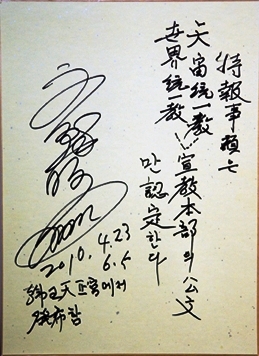 特報事項은
天宙統一教
世界統一教 宣教本部의 公文
만 認定한다
2010. 4.23
6.5
天正宮에서
發布함